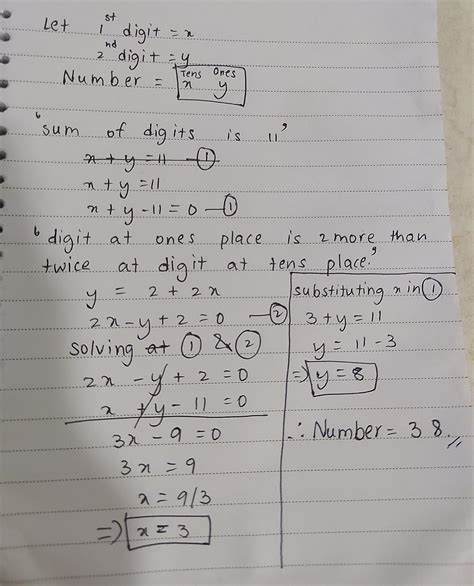 Let 1st digit = x
2nd digit = y
Tens Ones
Number = x y
'sum of digits is 11'
x + y = 11 — ①
x + y = 11
x + y - 11 = 0 — ①
'digit at ones place is 2 more than
twice at digit at tens place.'
y = 2 + 2x
2x - y + 2 = 0 — ②
solving at ① & ②
2x - y + 2 = 0
x + y - 11 = 0
3x - 9 = 0
3x = 9
x = 9/3
=> x = 3
substituting x in ①
3 + y = 11
y = 11 - 3
=> y = 8
∴ Number = 38